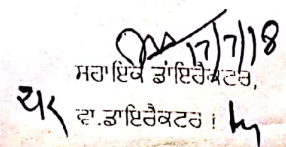 17/7/18
ਸਹਾਇਕ ਡਾਇਰੈਕਟਰ,
ਵਾ.ਡਾਇਰੈਕਟਰ।